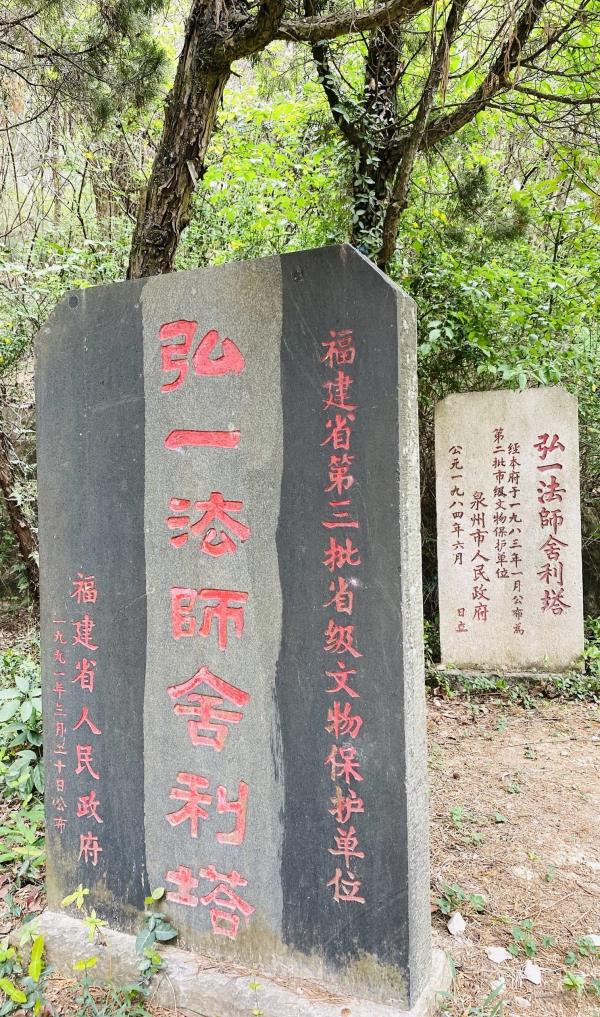 福建省第三批省级文物保护单位
弘一法師舍利塔
福建省人民政府
一九九一年三月二十日公布
弘一法師舍利塔
经本府于一九八三年一月公布為
第二批市级文物保护单位
泉州市人民政府
公元一九八四年六月 日立